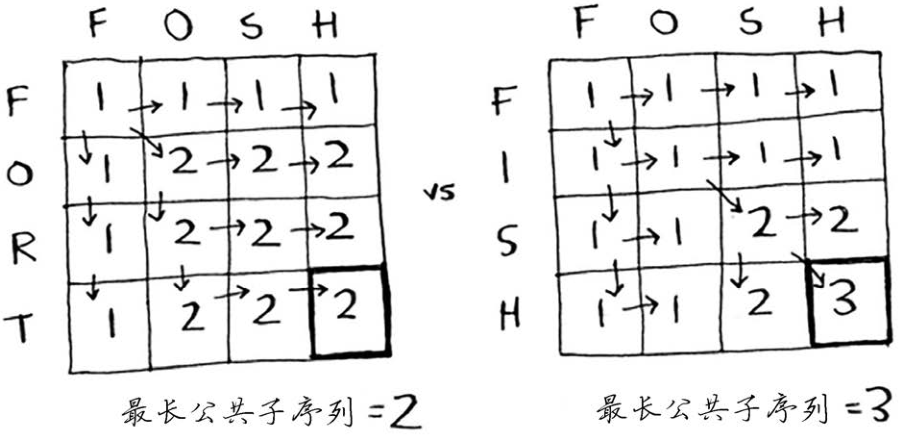 F O S H
F 1 1 1 1
O 1 2 2 2
R 1 2 2 2
T 1 2 2 2
最长公共子序列=2
vs
F O S H
F 1 1 1 1
I 1 1 1 1
S 1 1 2 2
H 1 1 2 3
最长公共子序列=3